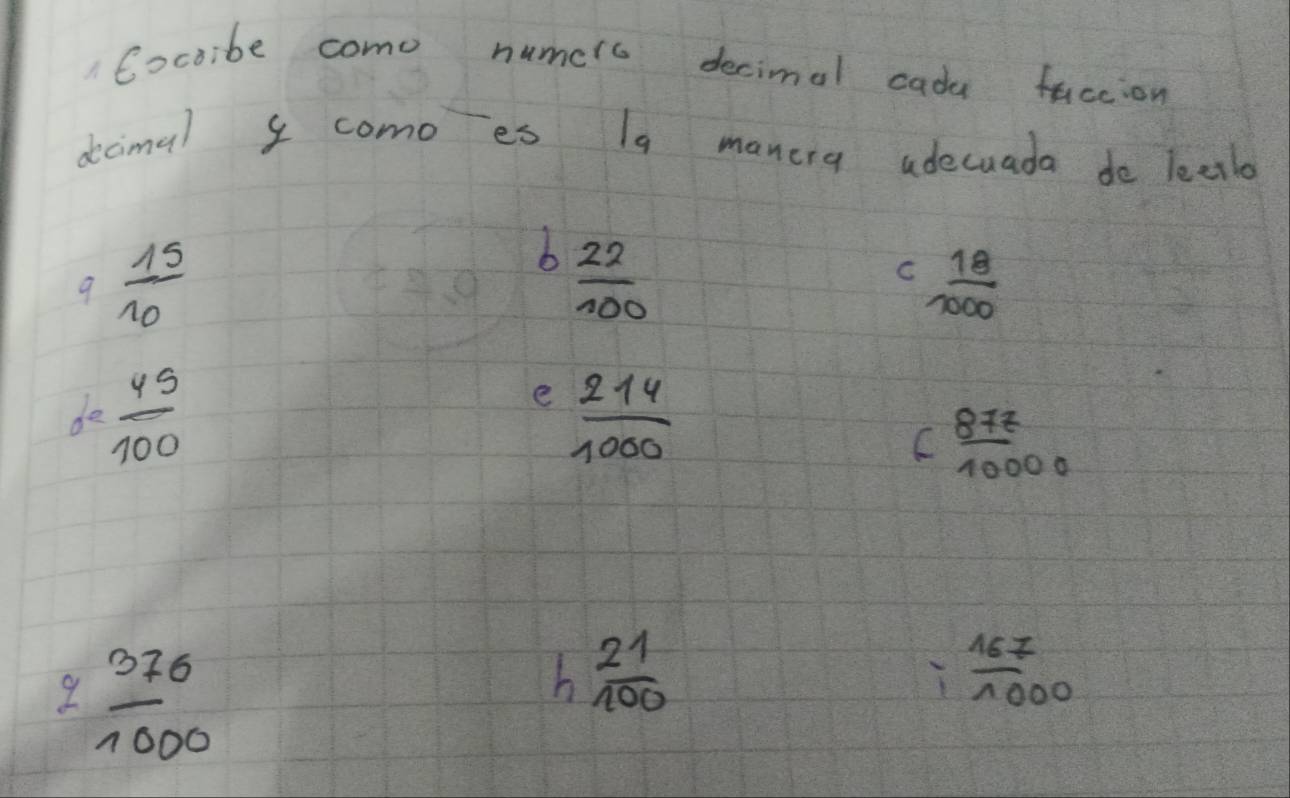 1 Escribe como numero decimal cada faccion
decimal y como es la manera adecuada de leerlo
a 15/10 b 22/100 c 18/1000
de 45/100 e 214/1000 f 877/10000
g 376/1000 h 21/100 i 167/1000